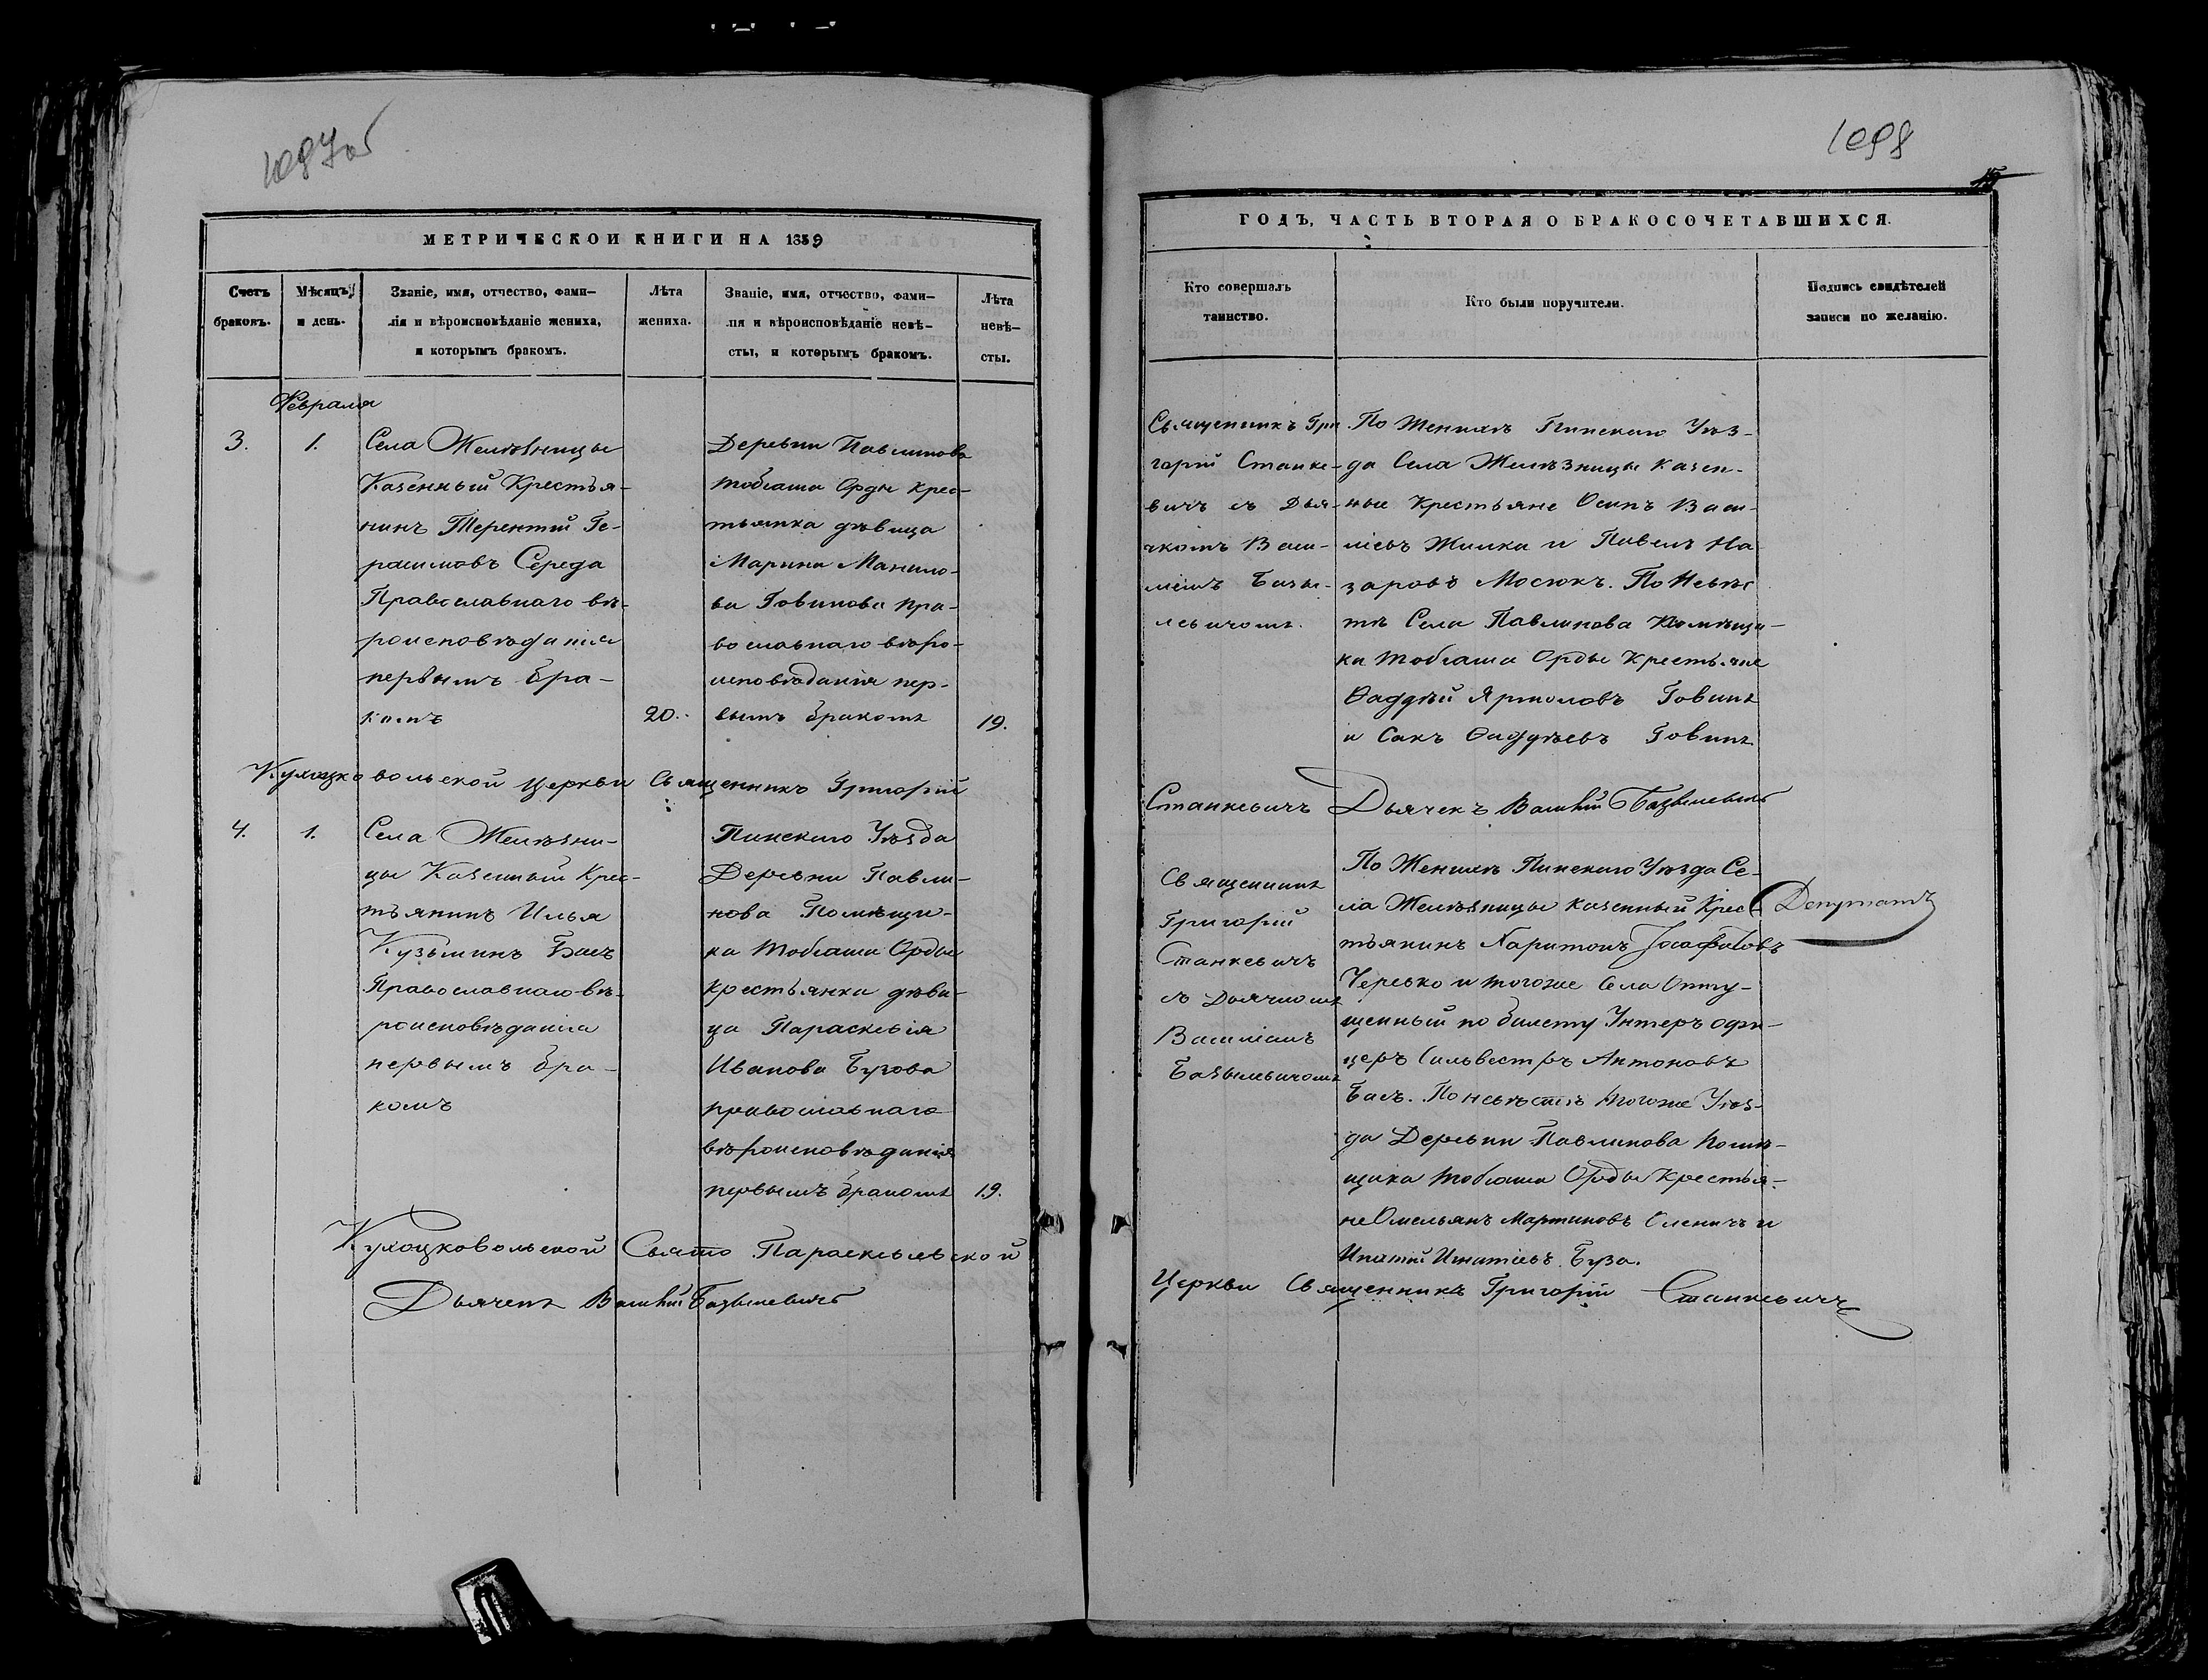 1097об
1098
МЕТРИЧЕСКОЙ КНИГИ НА 1859
Счетъ браковъ.
Мѣсяцъ и день.
Званіе, имя, отчество, фами-
лія и вѣроисповѣданіе жениха,
и которымъ бракомъ.
Лѣта
жениха.
Званіе, имя, отчество, фами-
лія и вѣроисповѣданіе невѣ-
сты, и которымъ бракомъ.
Лѣта
невѣ-
сты.
Февраля
3.
1.
Села Желѣзницы
Казенный Крестья-
нинъ Терентій Ге-
расимовъ Середа
Православнаго вѣ-
роисповѣданія
первымъ бра-
комъ
20.
Деревни Павлинова
Тобіаша Орды крес-
тьянка дѣвица
Марина Манило-
ва Говинова пра-
вославнаго вѣро-
исповѣданія пер-
вымъ бракомъ
19.
Кухоцковольской Церкви Священникъ Григорій
4.
1.
Села Желѣзни-
цы Казенный Крес-
тьянинъ Илья
Кузьминъ Басъ
Православнаго вѣ-
роисповѣданія
первымъ бра-
комъ
Пинскаго Уѣзда
Деревни Павли-
нова Помѣщи-
ка Тобіаша Орды
крестьянка дѣви-
ца Параскевія
Иванова Бузова
православнаго
вѣроисповѣданія
первымъ бракомъ
19.
Кухоцковольской Свято Параскевьевской
Дьячекъ Василій Базылевичъ
ГОДЪ, ЧАСТЬ ВТОРАЯ О БРАКОСОЧЕТАВШИХСЯ.
Кто совершалъ
таинство.
Кто были поручители.
Подпись свидѣтелей
записи по желанію.
Священникъ Гри
горій Станке-
вичъ съ Дья-
чкомъ Васи-
ліемъ Базы-
левичомъ.
По Женихѣ Пинскаго Уѣз-
да Села Желѣзницы казен-
ные Крестьяне Осипъ Васи-
ліевъ Жилка и Павелъ На
заровъ Мосюкъ. По Невѣс
тѣ Села Павлинова Помѣщи-
ка Тобіаша Орды Крестьяне
Ѳаддѣй Ярмоловъ Говинъ
и Сакъ Ѳаддѣевъ Говинъ
Станкевичъ Дьячекъ Василій Базылевичъ
Священникъ
Григорій
Станкевичъ
съ Дьячкомъ
Василіемъ
Базылевичомъ
По Женихѣ Пинскаго Уѣзда Се-
ла Желѣзницы казенный Крес-
тьянинъ Харитонъ Іосафатовъ
Черевко и тогоже Села Отпу-
щенный по билету Унтеръ офи-
церъ Сильвестръ Антоновъ
Басъ. По невѣстѣ тогоже Уѣз-
да Деревни Павлинова помѣ-
щика Тобіаша Орды Крестья-
не Омельянъ Мартиновъ Оленичъ и
Ипатій Игнатіевъ Буза.
Депутатъ
Церкви Священникъ Григорій Станкевичъ